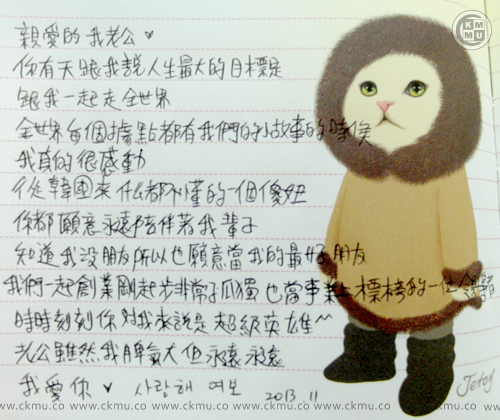 親愛的我老公 ♥
你有天跟我說人生最大的目標是
跟我一起走全世界
全世界每個據點都有我們的小故事的時侯
我真的很感動
從韓國來 什么都不懂的一個傻妞
你都願意永遠陪伴著我 輩子
知道我沒朋友所以也願意當我的最好朋友
我們一起創業剛起步非常孤獨 也當事業上標榜的一位
時時刻刻你對我來說是超級英雄^^
老公雖然我脾氣大但永遠永遠
我愛你 ♥ 사랑해 여보 2013. 11
Jetoy
CKMMU
www.ckmu.co www.ckmu.co www.ckmu.co www.ckmu.co